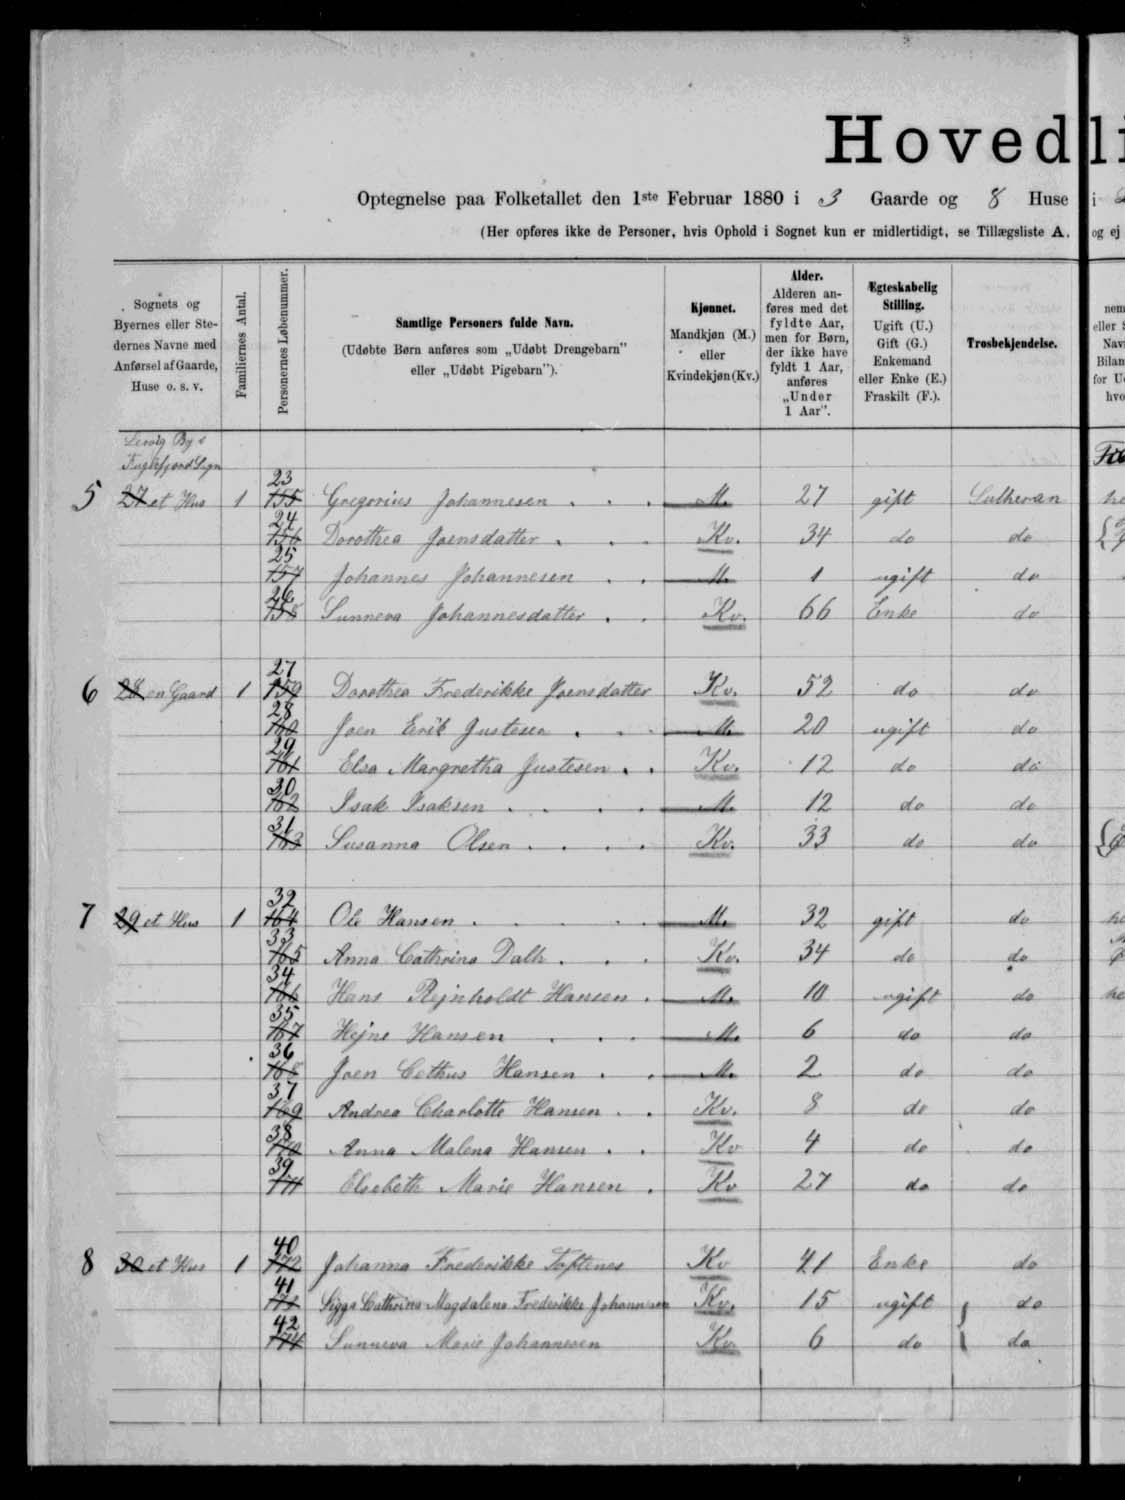 Hovedli
Optegnelse paa Folketallet den 1ste Februar 1880 i 3 Gaarde og 8 Huse i
(Her opføres ikke de Personer, hvis Ophold i Sognet kun er midlertidigt, se Tillægsliste A. og ej
Sognets og Byernes eller Ste-dernes Navne med Anførsel af Gaarde, Huse o. s. v.
Familiernes Antal.
Personernes Løbenummer.
Samtlige Personers fulde Navn.
(Udøbte Børn anføres som „Udøbt Drengebarn"
eller „Udøbt Pigebarn").
Kjønnet.
Mandkjøn (M.)
eller
Kvindekjøn (Kv.)
Alder.
Alderen an-
føres med det
fyldte Aar,
men for Børn,
der ikke have
fyldt 1 Aar,
anføres
„Under
1 Aar".
Ægteskabelig
Stilling.
Ugift (U.)
Gift (G.)
Enkemand
eller Enke (E.)
Fraskilt (F.).
Trosbekjendelse.
Lervig By i
Fuglefjord Sogn
5 27 et Hus 1 23 155 Gregorius Johannesen M. 27 gift Lutheran
24 156 Dorothea Joensdatter Kv. 34 do do
25 157 Johannes Johannesen M. 1 ugift do
26 158 Sunneva Johannesdatter Kv. 66 Enke do
6 28 en Gaard 1 27 159 Dorothea Frederikke Joensdatter Kv. 52 do do
28 160 Joen Erik Justesen M. 20 ugift do
29 161 Elsa Margretha Justesen Kv. 12 do do
30 162 Isak Isaksen M. 12 do do
31 163 Susanna Olsen Kv. 33 do do
7 29 et Hus 1 32 164 Ole Hansen M. 32 gift do
33 165 Anna Cathrina Dalh Kv. 34 do do
34 166 Hans Rejnholdt Hansen M. 10 ugift do
35 167 Hejne Hansen M. 6 do do
36 168 Joen Hansen M. 2 do do
37 169 Andrea Charlotte Hansen Kv. 8 do do
38 170 Anna Malena Hansen Kv 4 do do
39 171 Elsebeth Marie Hansen Kv 27 do do
8 30 et Hus 1 40 172 Johanna Frederikke Toftenes Kv 41 Enke do
41 173 Sigga Cathrina Magdalena Frederikke Johannesen Kv. 15 ugift do
42 174 Sunneva Marie Johannesen Kv. 6 do do